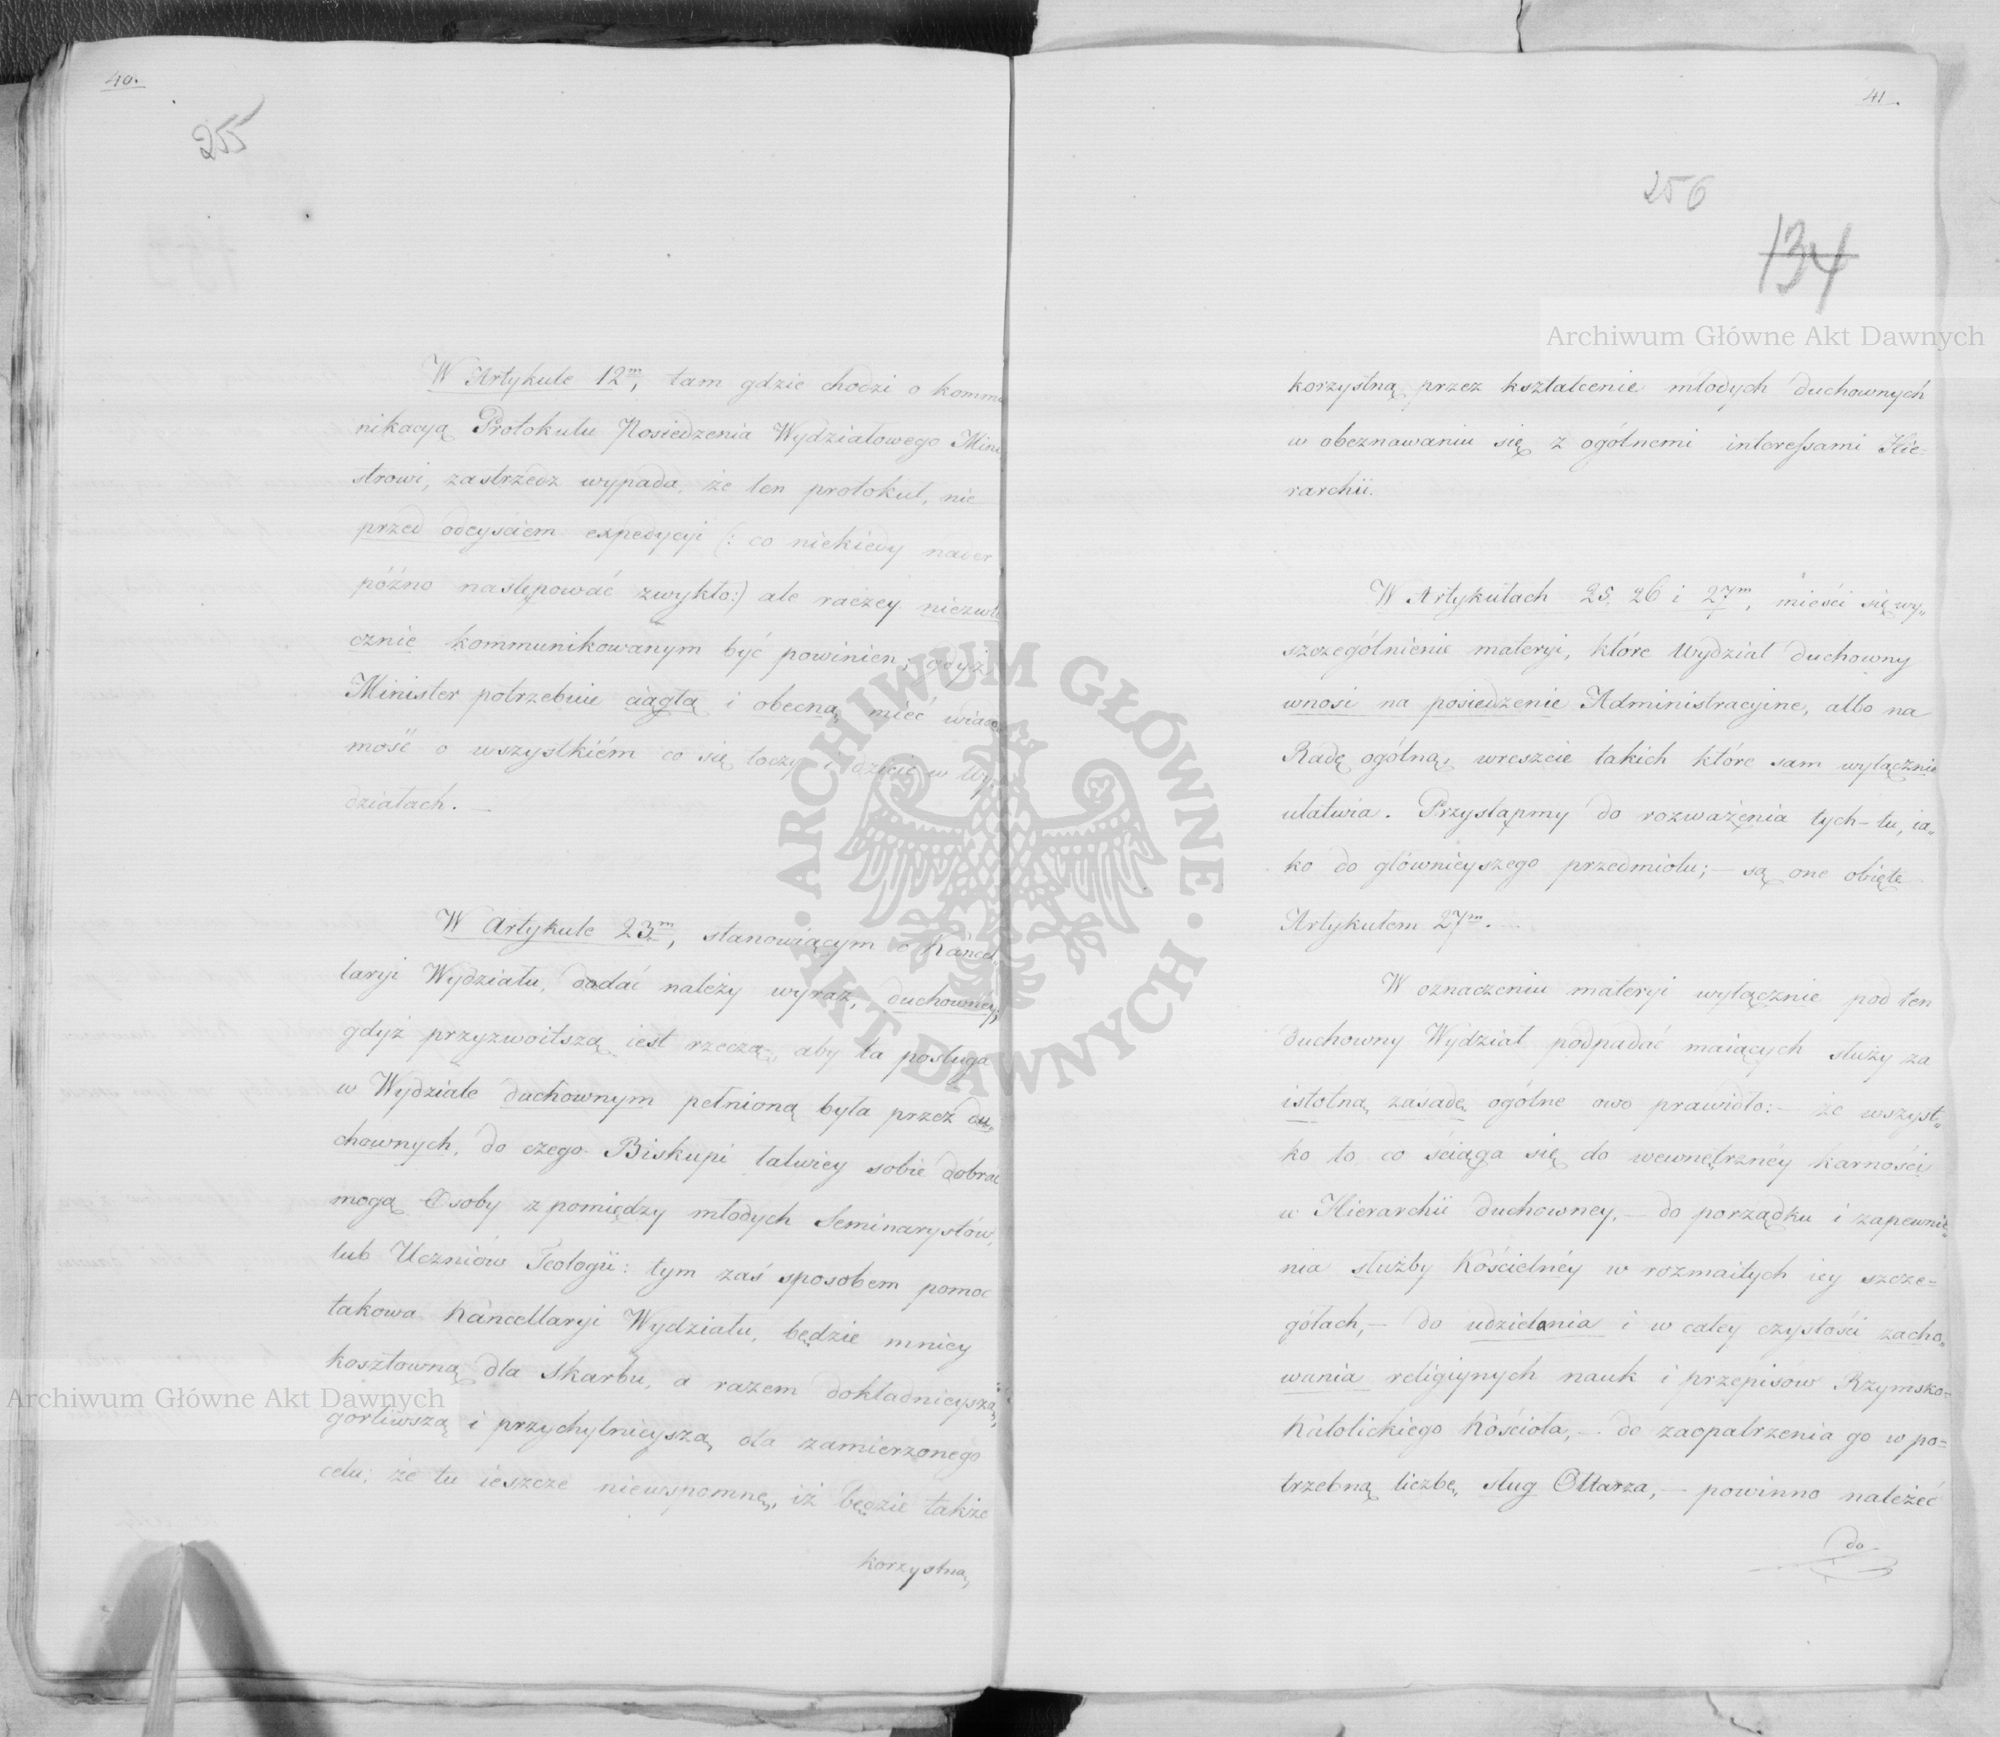 40.
255
W Artykule 12m, tam gdzie chodzi o kommu
nikacyą Protokułu Posiedzenia Wydziałowego Mini
strowi, zastrzedz wypada, że ten protokuł, nie
przed odeysciem expedycyi (: co niekiedy nader
późno następować zwykło:) ale raczey niezwło
cznie kommunikowanym być powinien; gdyż
Minister potrzebuie ciągłą i obecną mieć wiado
mość o wszystkiém co się toczy i dzieie w Wy
działach. —
W Artykule 23m, stanowiącym o Kancel
laryi Wydziału, dodać należy wyraz, duchowney,
gdyż przyzwoitszą iest rzeczą, aby ta posługa
w Wydziale duchownym pełnioną była przez du=
chownych, do czego Biskupi łatwiey sobie dobrać
mogą Osoby z pomiędzy młodych Seminarystów,
lub Uczniów Teologii: tym zaś sposobem pomoc
takowa Kancellaryi Wydziału, będzie mniey
kosztowną dla Skarbu, a razem dokładnieyszą,
gorliwszą i przychylnieyszą dla zamierzonego
celu; że tu ieszcze niewspomnę, iż będzie także
korzystną,
41.
256
134
korzystną przez kształcenie młodych duchownych
w obeznawaniu się z ogólnemi interessami Hie=
rarchii.
W Artykułach 25. 26 i 27m, mieści się wy„
szczególnienie materyi, które Wydział duchowny
wnosi na posiedzenie Administracyine, albo na
Radę ogólną, wreszcie takich które sam wyłącznie
ułatwia. Przystąpmy do rozważenia tych-tu, ia„
ko do głównieyszego przedmiotu; — są one obięte
Artykułem 27m. —
W oznaczeniu materyi wyłącznie pod ten
duchowny Wydział podpadać maiących służy za
istotną zasadę ogólne owo prawidło: — że wszyst„
ko to co ściąga się do wewnętrzney karności
w Hierarchii duchowney, — do porządku i zapewnie„
nia służby Kościelnéy w rozmaitych iey szcze=
gółach, — do udzielania i w całey czystości zacho„
wania religiynych nauk i przepisów Rzymsko=
Katolickiego Kościoła, — do zaopatrzenia go w po=
trzebną liczbę sług Ołtarza, — powinno należeć
do
Archiwum Główne Akt Dawnych
ARCHIWUM GŁÓWNE AKT DAWNYCH
Archiwum Główne Akt Dawnych